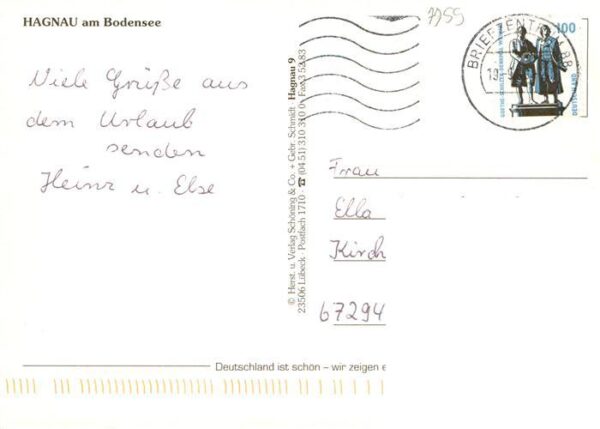 HAGNAU am Bodensee
7955
Viele Grüße aus
dem Urlaub
senden
Heinz u. Else
© Herst. u. Verlag Schöning & Co. + Gebr. Schmidt
23506 Lübeck · Postfach 1710 · ☎ (04 51) 310 310
Hagnau 9
Fax 3 52 83
BRIEFZENTRUM 88
100
DEUTSCHE BUND
GOETHE-SCHILLER-DENKMAL WEIMAR
Frau
Ella
Kirch
67294
Deutschland ist schön – wir zeigen e